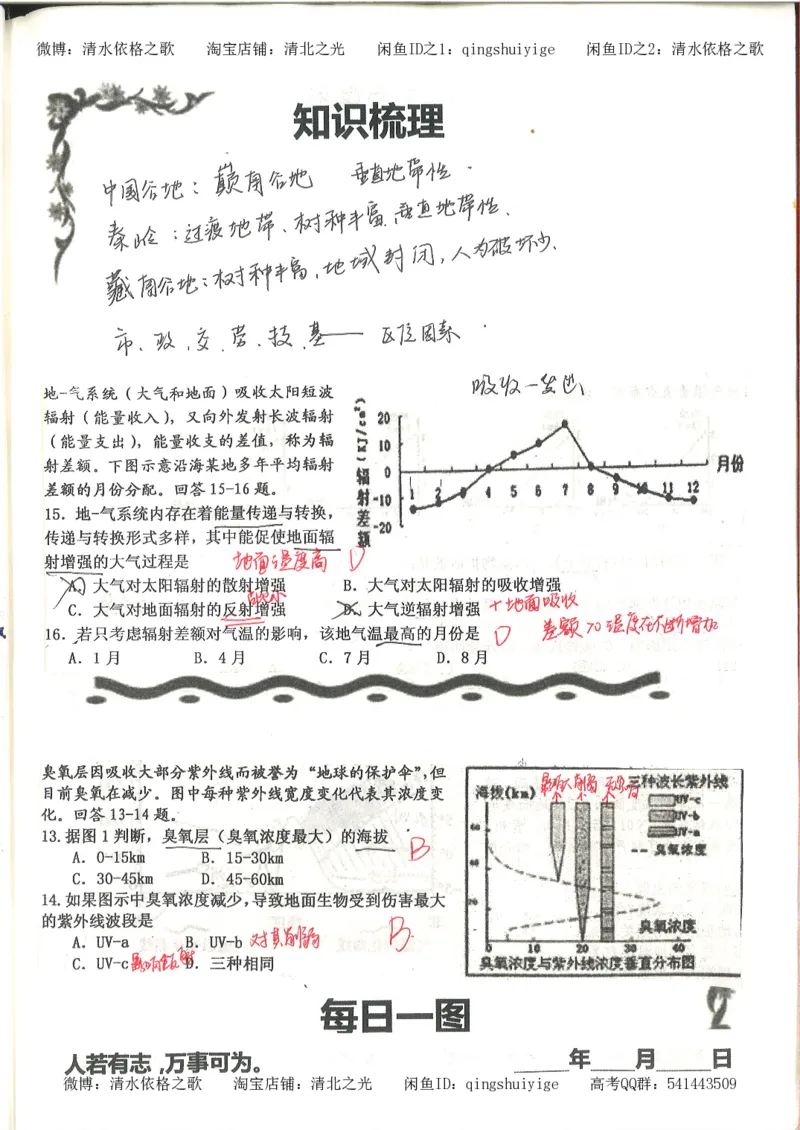 微博：清水依格之歌 淘宝店铺：清北之光 闲鱼ID之1：qingshuiyige 闲鱼ID之2：清水依格之歌
知识梳理
中国谷地：巅周谷地 垂直地带性.
秦岭：过渡地带、树种丰富、垂直地带性、
藏周谷地：树种丰富，地域封闭，人为破坏少.
市、政、交、劳、技、基—— 区位因素
吸收一发出
地-气系统（大气和地面）吸收太阳短波
辐射（能量收入），又向外发射长波辐射
（能量支出），能量收支的差值，称为辐
射差额。下图示意沿海某地多年平均辐射
差额的月份分配。回答15-16题。
辐射差额(KJ/cm²)
20
10
0
-10
-20
1 2 3 4 5 6 7 8 9 10 11 12
月份
15．地-气系统内存在着能量传递与转换，
传递与转换形式多样，其中能促使地面辐
射增强的大气过程是 地面温度高 D
A．大气对太阳辐射的散射增强 B．大气对太阳辐射的吸收增强
C．大气对地面辐射的反射增强 D．大气逆辐射增强 +地面吸收
16．若只考虑辐射差额对气温的影响，该地气温最高的月份是 D 差额>0温度在不断增加
A．1月 B．4月 C．7月 D．8月
臭氧层因吸收大部分紫外线而被誉为“地球的保护伞”，但
目前臭氧在减少。图中每种紫外线宽度变化代表其浓度变
化。回答13-14题。
13.据图1判断，臭氧层（臭氧浓度最大）的海拔 B
A．0-15km B．15-30km
C．30-45km D．45-60km
14.如果图示中臭氧浓度减少，导致地面生物受到伤害最大
的紫外线波段是 B
A．UV-a B．UV-b 对其削弱
C．UV-c D．三种相同
海拨(km)
三种波长紫外线
UV-c
UV-b
UV-a
臭氧浓度
60
40
20
臭氧浓度
0 10 20 30 40
臭氧浓度与紫外线浓度垂直分布图
每日一图
2
人若有志，万事可为。 ____年____月____日
微博：清水依格之歌 淘宝店铺：清北之光 闲鱼ID：qingshuiyige 高考QQ群：541443509